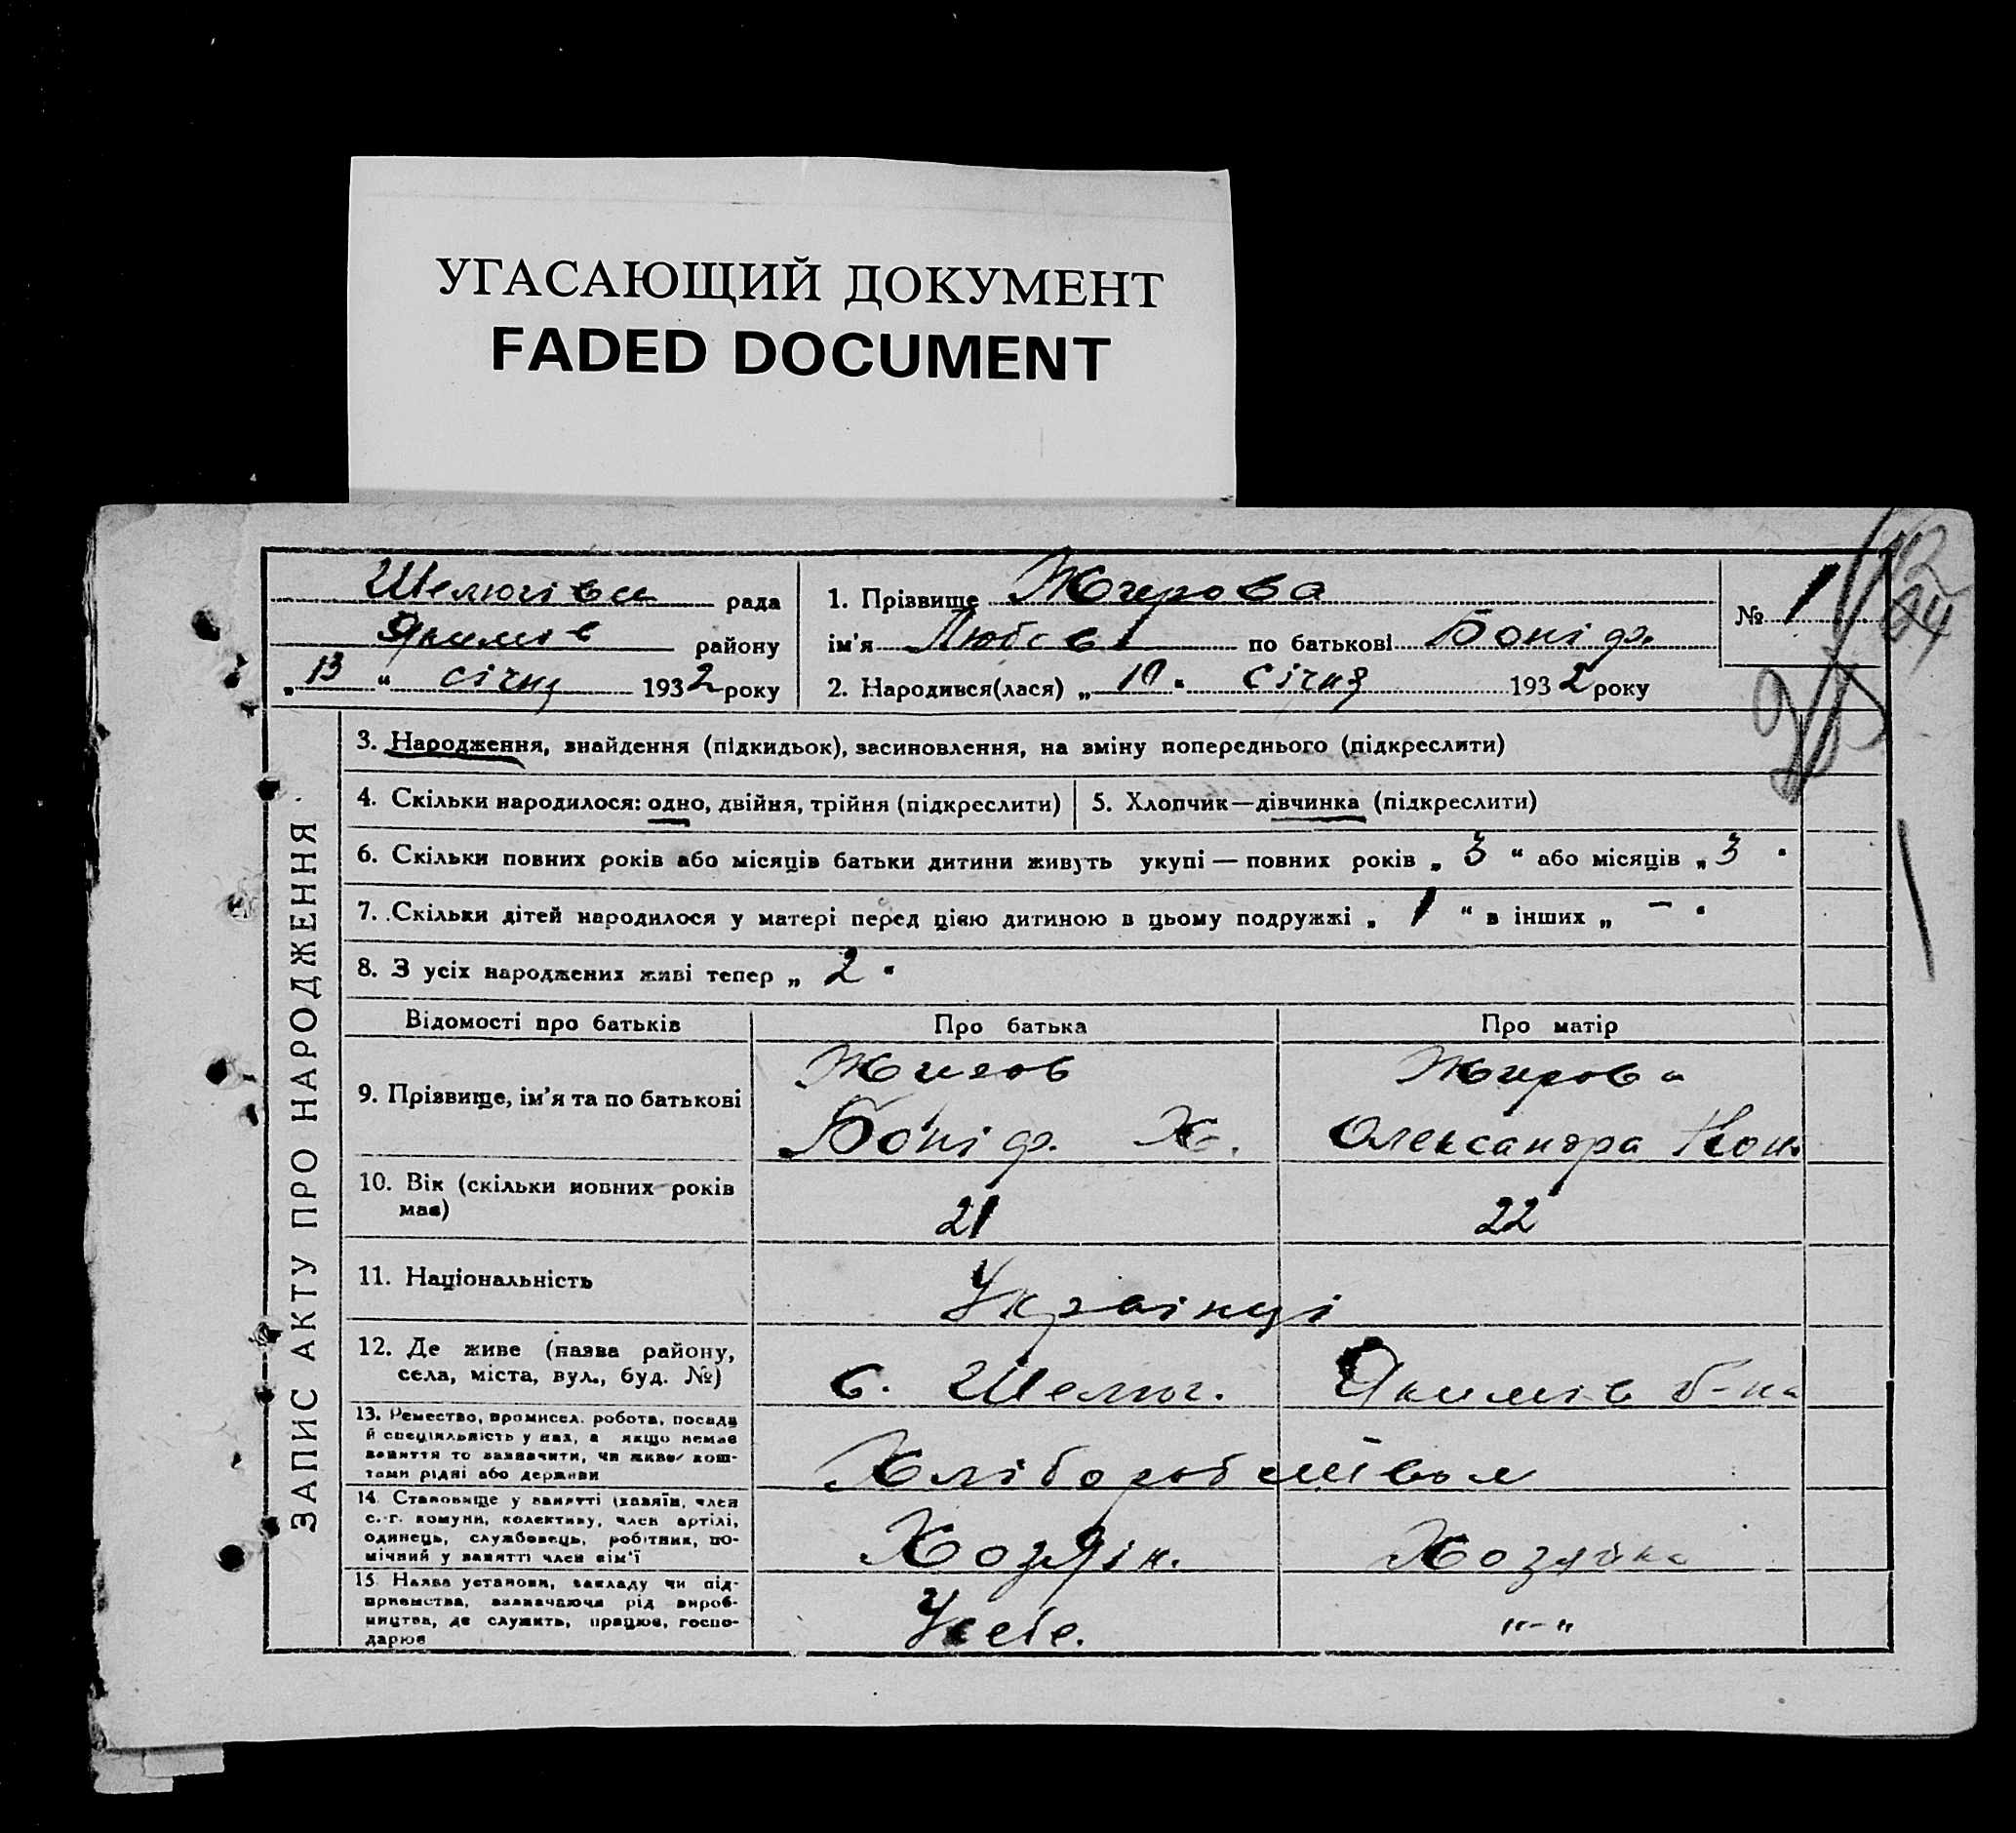 УГАСАЮЩИЙ ДОКУМЕНТ
FADED DOCUMENT
Шелюгівсь рада
Якимів району
„13“ січня 1932 року
1. Прізвище Жирова
ім'я Любов по батькові Боніф.
2. Народився(лася) „10“ січня 1932 року
№ 1
ЗАПИС АКТУ ПРО НАРОДЖЕННЯ
3. Народження, знайдення (підкидьок), засиновлення, на зміну попереднього (підкреслити)
4. Скільки народилося: одно, двійня, трійня (підкреслити)
5. Хлопчик—дівчинка (підкреслити)
6. Скільки повних років або місяців батьки дитини живуть укупі — повних років „3“ або місяців „3“
7. Скільки дітей народилося у матері перед цією дитиною в цьому подружжі „1“ в інших „—“
8. З усіх народжених живі тепер „2“
Відомості про батьків
Про батька
Про матір
9. Прізвище, ім'я та по батькові
Жиров
Боніф. Х.
Жирова
Олександра
10. Вік (скільки повних років
має)
21
22
11. Національність
Українці
12. Де живе (назва району,
села, міста, вул., буд. №)
с. Шелюг. Якимів р-на
13. Ремество, промисел, робота, посада
й спеціяльність у них, а якщо немає
заняття то зазначити, чи живе кош-
тами рідні або держави
Хліборобством
14. Становище у занятті (хазяїн, член
с.-г. комуни, колективу, член артілі,
одинець, службовець, робітник, по-
мічний у занятті член сім'ї
Хозяїн.
Хозяйка
15. Назва установи, закладу чи під-
приємства, зазначаючи рід вироб-
ництва, де служить, працює, госпо-
дарює
У себе.
"-"